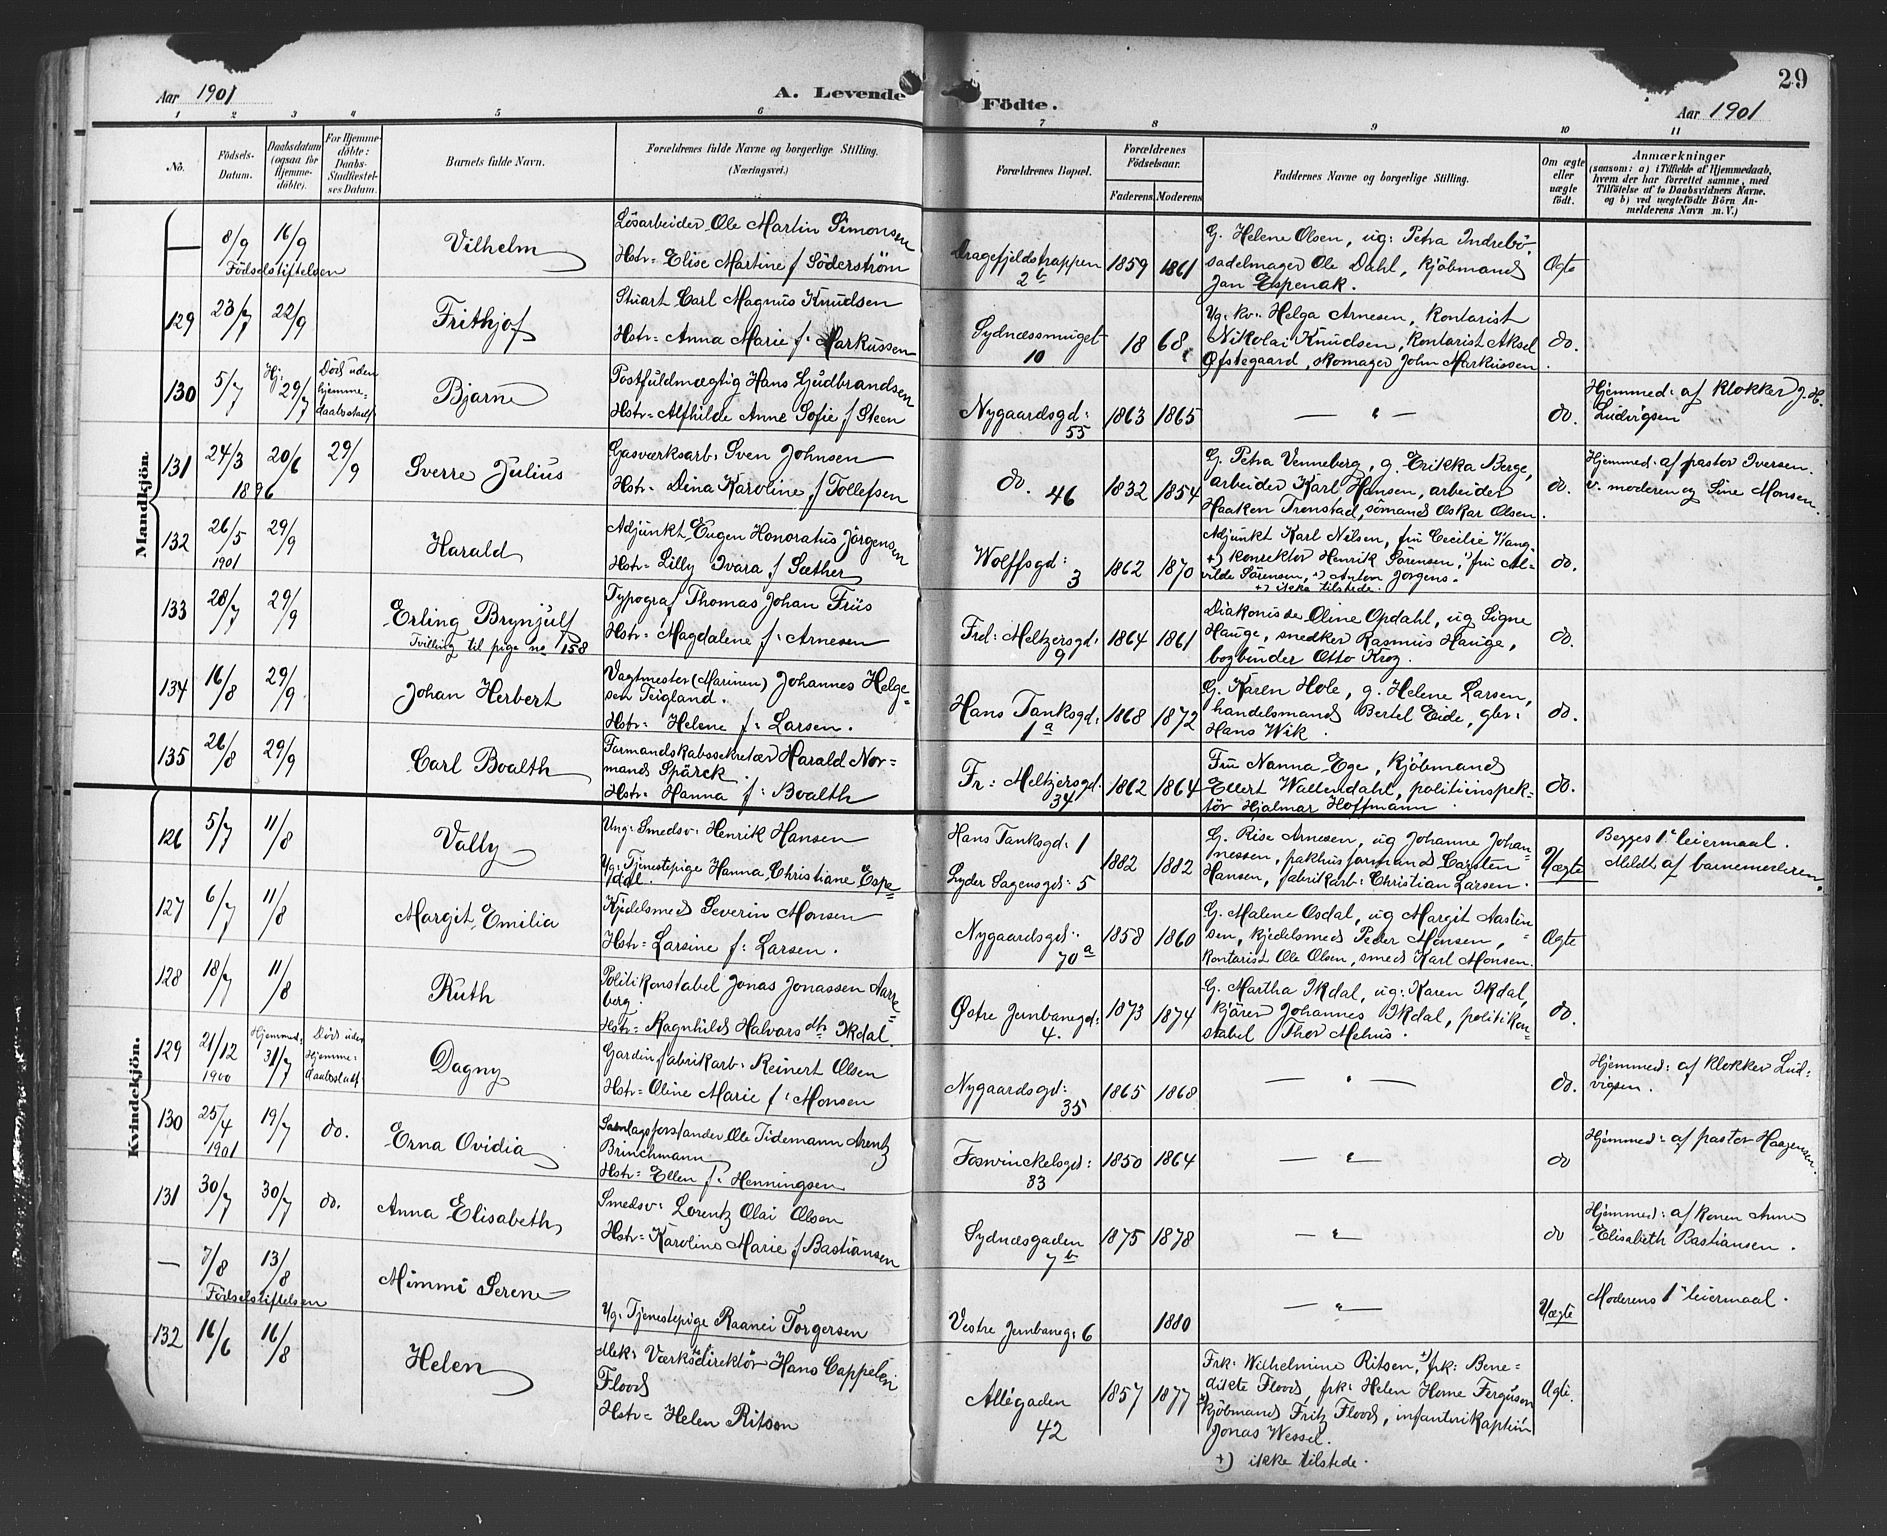 29
Aar 1901
A. Levende Födte.
Aar 1901
1 2 3 4 5 6 7 8 9 10 11
No.
Födsels-Datum.
Daabsdatum (ogsaa for Hjemme-döbte).
For Hjemme-döbte: Daabs-Stadfæstel-ses Datum.
Barnets fulde Navn.
Forældrenes fulde Navne og borgerlige Stilling. (Næringsvei.)
Forældrenes Bopæl.
Forældrenes Födselsaar.
Faderens Moderens
Faddernes Navne og borgerlige Stilling.
Om ægte eller uægte födt.
Anmærkninger
(saasom: a) i Tilfælde af Hjemmedaab, hvem der har forrettet samme, med Tilföielse af to Daabsvidners Navne, og b) ved uægtefödte Börn An-melderens Navn m. V.)
Mandkjön
— 8/9 16/9 Födselstiftelsen
Vilhelm
Lösarbeider Ole Martin Simonsen
Hstr= Elise Martine f Söderström
Dragefjeldstrappen 2b
1859 1861
G. Helene Olsen, ug: Petra Indrebö
sadelmager Ole Dahl, kjöbmand
Jan Espenak.
Ægte
129 23/7 22/9
Frithjof
Stuart Carl Magnus Knudsen
Hstr= Anna Marie f: Markussen
Sydnæssmuget 10
18 68
Ug. kv: Helga Arnesen, kontorist
Nikolai Knudsen, kontorist Aksel
Øfstegaard, skomager John Markussen
do.
130 5/7 Hj. 29/7 Död uden hjemme-daabsstadf
Bjarne
Postfuldmægtig Hans Gudbrandsen
Hstr= Alfhilde Anne Sofie f Steen
Nygaardsgd: 55
1863 1865
— " —
do.
Hjemmed: af klokker J. H.
Ludvigsen
131 24/3 1896 20/6 29/9
Sverre Julius
Gasværksarb: Sven Johnsen
Hstr. Dina Karoline f Tollefsen
do. 46
1832 1854
G. Petra Venneberg, g. Erikka Berge,
arbeider Karl Hansen, arbeider
Haaken Trenstad, sömand Oskar Olsen.
do.
Hjemmed: af pastor Iversen.
v. moderen og Sine Monsen.
132 26/5 1901 29/9
Harald
Adjunkt Eugen Honoratus Jörgensen
Hstr= Lilly Ivara f Sæther
Wolffsgd: 3
1862 1870
Adjunkt Karl Nilsen, fru Cecilie Wang,
+) konrektor Henrik Sörensen, fru Al-
vilde Sörensen, +) Anton Jörgens.
+) ikke tilstede.
do.
133 28/7 29/9
Erling Brynjulf
Tvilling til pige no 158
Typograf Thomas Johan Friis
Hstr= Magdalene f: Arnesen
Frd: Meltzersgd: 9
1864 1861
Diakonisse Oline Opdahl, ug Signe
Hauge, snedker Rasmus Hauge,
bogbinder Otto Krog.
do.
134 16/8 29/9
Johan Herbert
Vagtmester (Marinen) Johannes Helge-
sen Teigland.
Hstr= Helene f: Larsen.
Hans Tanksgd: 1a
1868 1872
G. Karen Hole, g. Helene Larsen,
handelsmand Bertel Eide, gbr:
Hans Wik.
do.
135 26/8 29/9
Carl Boalth
Formandskabssekretær Harald Nor-
mand Spärck.
Hstr= Hanna f: Boalth
Fr: Meltzersgd. 34
1862 1864
Fru Nanna Ege, kjöbmand
Ellert Wallendahl, politiinspek-
tör Hjalmar Hoffmann.
do.
Kvindekjön.
126 5/7 11/8
Vally
Ung: Smedsv: Henrik Hansen
Ug: Tjenestepige Hanna Christiane Espe-
dal.
Hans Tanksgd: 1
Lyder Sagensgd: 5
1882 1882
G. Rise Arnesen, ug Johanne Johan-
nessen, pakhusformand Carsten
Hansen, fabrikarb: Christian Larsen.
Uægte
Begges 1ste leiermaal.
Meldt af barnemoderen.
127 6/7 11/8
Margit Emilia
Kjedelsmed Severin Monsen
Hstr= Larsine f: Larsen.
Nygaardsgd: 70a
1858 1860
G. Malene Osdal, ug Margit Aasten-
sen, kjedelsmed Peder Monsen,
kontorist Ole Olsen, smed Karl Monsen.
Ægte
128 18/7 11/8
Ruth
Politikonstabel Jonas Jonassen Aarre-
berg.
Hstr= Ragnhild Halvorsdtr Ikdal.
Østre Jernbanegd: 4.
1873 1874
G. Martha Ikdal, ug: Karen Ikdal,
kjörer Johannes Ikdal, politikon-
stabel Thor Mehus.
do.
129 21/12 1900 Hjemmed: 31/7 Död uden Hjemme-daabsstadf.
Dagny
Gardinfabrikarb: Reinert Olsen
Hstr= Oline Marie f: Monsen
Nygaardsgd: 35
1865 1868
— " —
do.
Hjemmed: af klokker Lud-
vigsen.
130 25/4 1901 19/7 do.
Erna Ovidia
Samlagsforstander Ole Tidemann Arentz
Brinchmann
Hstr= Ellen f: Henningsen
Foswinckelsgd: 83
1850 1864
— " —
do
Hjemmed: af pastor Haagensen.
131 30/7 30/7 do.
Anna Elisabeth
Smedsv: Lorentz Olai Olsen
Hstr= Karoline Marie f Bastiansen
Sydnæsgaden 7b
1875 1878
— " —
do
Hjemmed: af konen Anne
Elisabeth Bastiansen.
— 7/8 13/8 Födselstiftelsen
Mimmi Serene
Ug: Tjenestepige Raanei Torgersen
Vestre Jernbaneg: 6
1880
— " —
Uægte
Moderens 1ste leiermaal.
132 16/6 16/8
Helen
Mek: Værksdirektör Hans Cappelen
Flood
Hstr= Helen Ritson
Allégaden 42
1857 1877
Frk: Wilhelmine Ritsen, +) frk: Bene-
dikte Flood, frk: Helen Home Ferguson
+) kjöbmand Fritz Flood, infanterikaptein
Jonas Wessel.
+) ikke tilstede.
Ægte.